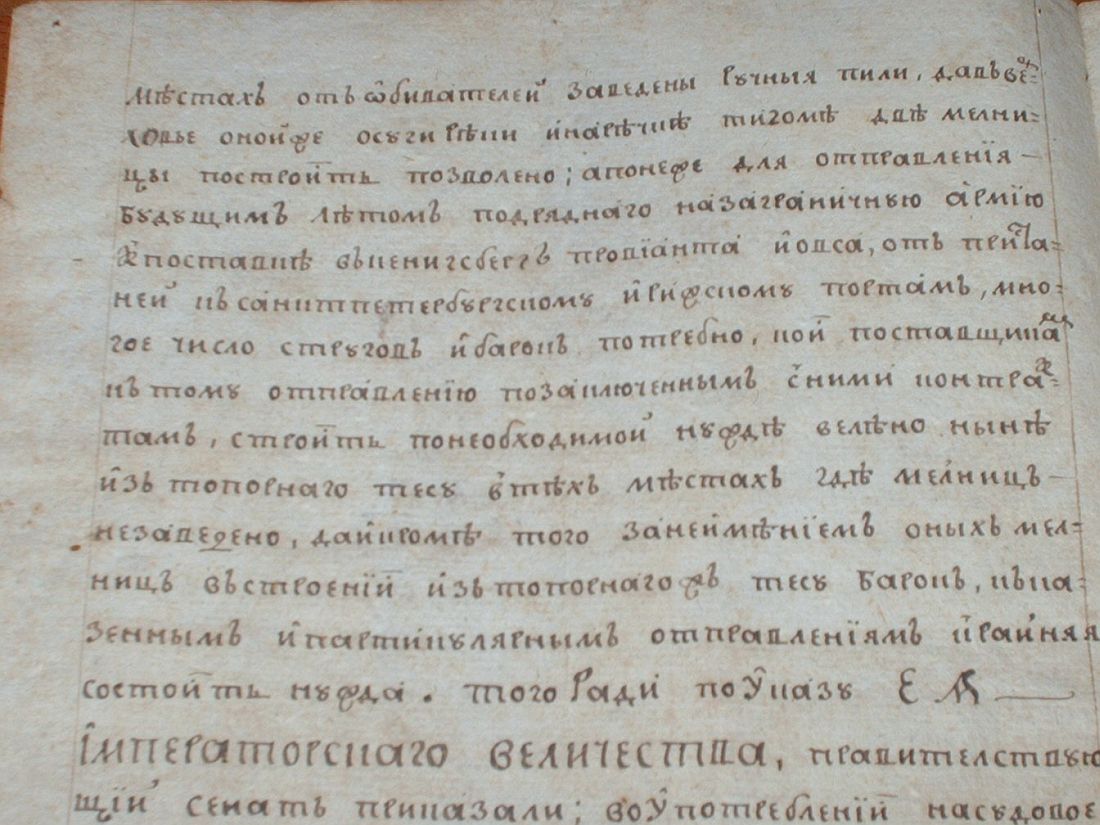 мѣстахъ отъ ѡбивателей заведены ручныя пили, давъве͗р=
ховье оной же осуги рѣки инарѣчкѣ тигомѣ двѣ мелни=
цы построить позволено; апонеже для отправленїя —
будущимъ лѣтомъ подряднаго назаграничную армїю
кпоставкѣ въкенигсбергъ провїанта иовса, отъ приста=
ней късанктпетербургскому ирижскому портамъ, мно=
гое число струговъ ибарокъ потребно, кои поставщикамъ
ктому отправленїю позаключеннымъ сними контрак=
тамъ, строить понеобходимой нуждѣ велѣно нынѣ
изъ топорнаго тесу втѣхъ мѣстахъ гдѣ мелницъ —
незаведено, даикромѣ того занеимѣнїемъ оныхъ мел=
ницъ въстроенїи изъ топорнагожъ тесу барокъ, къка=
зеннымъ ипартикулярнымъ отправленїямъ крайняя
состоитъ нужда. того ради по указу Е Я
імператорскаго величества, правителствую
щїй сенатъ приказали; воупотребленїи насудовое